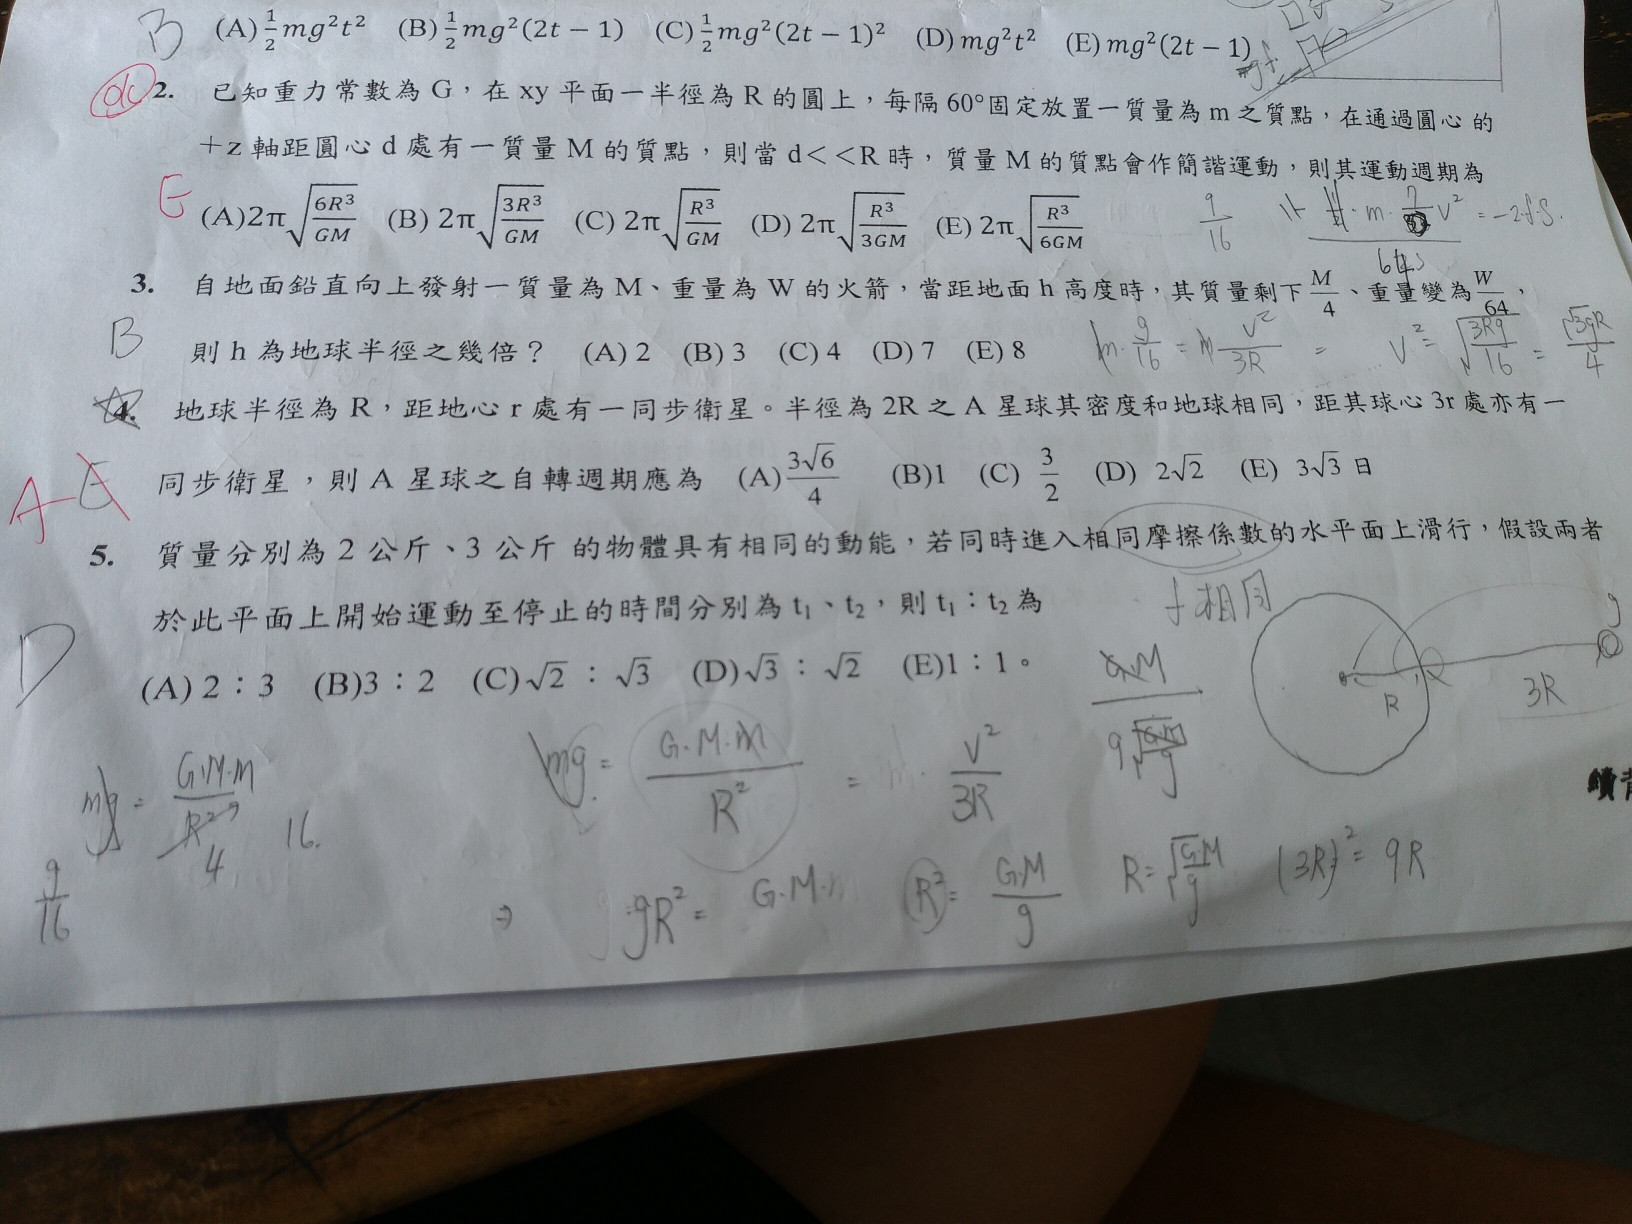 B (A) ½mg²t² (B) ½mg²(2t − 1) (C) ½mg²(2t − 1)² (D) mg²t² (E) mg²(2t − 1)
2. 已知重力常數為 G，在 xy 平面一半徑為 R 的圓上，每隔 60°固定放置一質量為 m 之質點，在通過圓心 的
＋z 軸距圓心 d 處有一質量 M 的質點，則當 d＜＜R 時，質量 M 的質點會作簡諧運動，則其運動週期為
E (A)2π√(6R³/GM) (B) 2π√(3R³/GM) (C) 2π√(R³/GM) (D) 2π√(R³/3GM) (E) 2π√(R³/6GM)
3. 自地面鉛直向上發射一質量為 M、重量為 W 的火箭，當距地面 h 高度時，其質量剩下 M/4、重量變為 W/64，
B 則 h 為地球半徑之幾倍？ (A) 2 (B) 3 (C) 4 (D) 7 (E) 8
m·g/16 = m V²/3R = V² = √(3Rg/16) = √3gR/4
4. 地球半徑為 R，距地心 r 處有一同步衛星。半徑為 2R 之 A 星球其密度和地球相同，距其球心 3r 處亦有一
A E 同步衛星，則 A 星球之自轉週期應為 (A) 3√6/4 (B)1 (C) 3/2 (D) 2√2 (E) 3√3 日
5. 質量分別為 2 公斤、3 公斤 的物體具有相同的動能，若同時進入相同摩擦係數的水平面上滑行，假設兩者
於此平面上開始運動至停止的時間分別為 t₁、t₂，則 t₁：t₂ 為
f 相同
D (A) 2：3 (B)3：2 (C)√2：√3 (D)√3：√2 (E)1：1。
R 3R
mg = G·M·m/R² = V²/3R
16.
g/16
gR² = G·M·m R² = GM/g R = √(GM/g) (3R)² = 9R